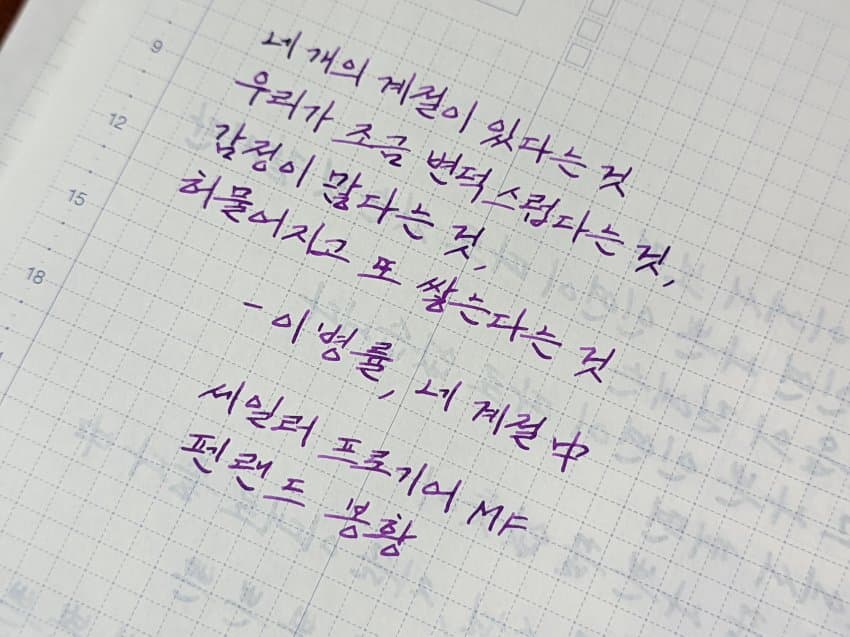 9
12
15
18
네 개의 계절이 있다는 것
우리가 조금 변덕스럽다는 것,
감정이 많다는 것,
허물어지고 또 쌓는다는 것
- 이병률, 네 계절 中
세일러 프로기어 MF
펜랜드 봉황